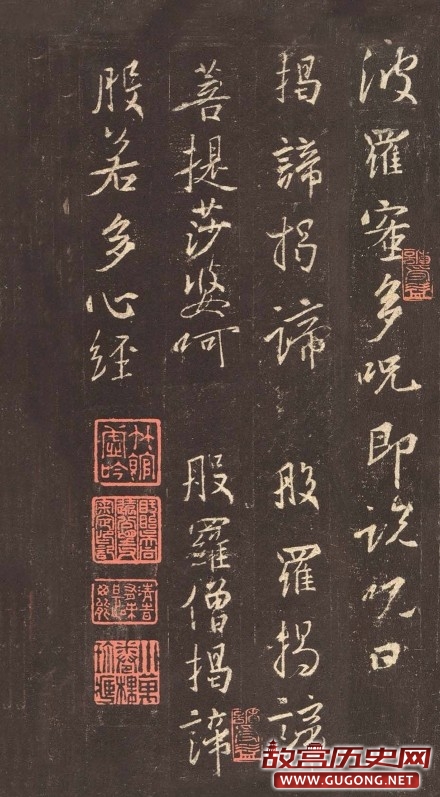 波羅蜜多呪即說呪曰
揭諦揭諦 般羅揭諦
菩提莎婆呵 般羅僧揭諦
般若多心經
故宫历史网
WWW.GUGONG.NET